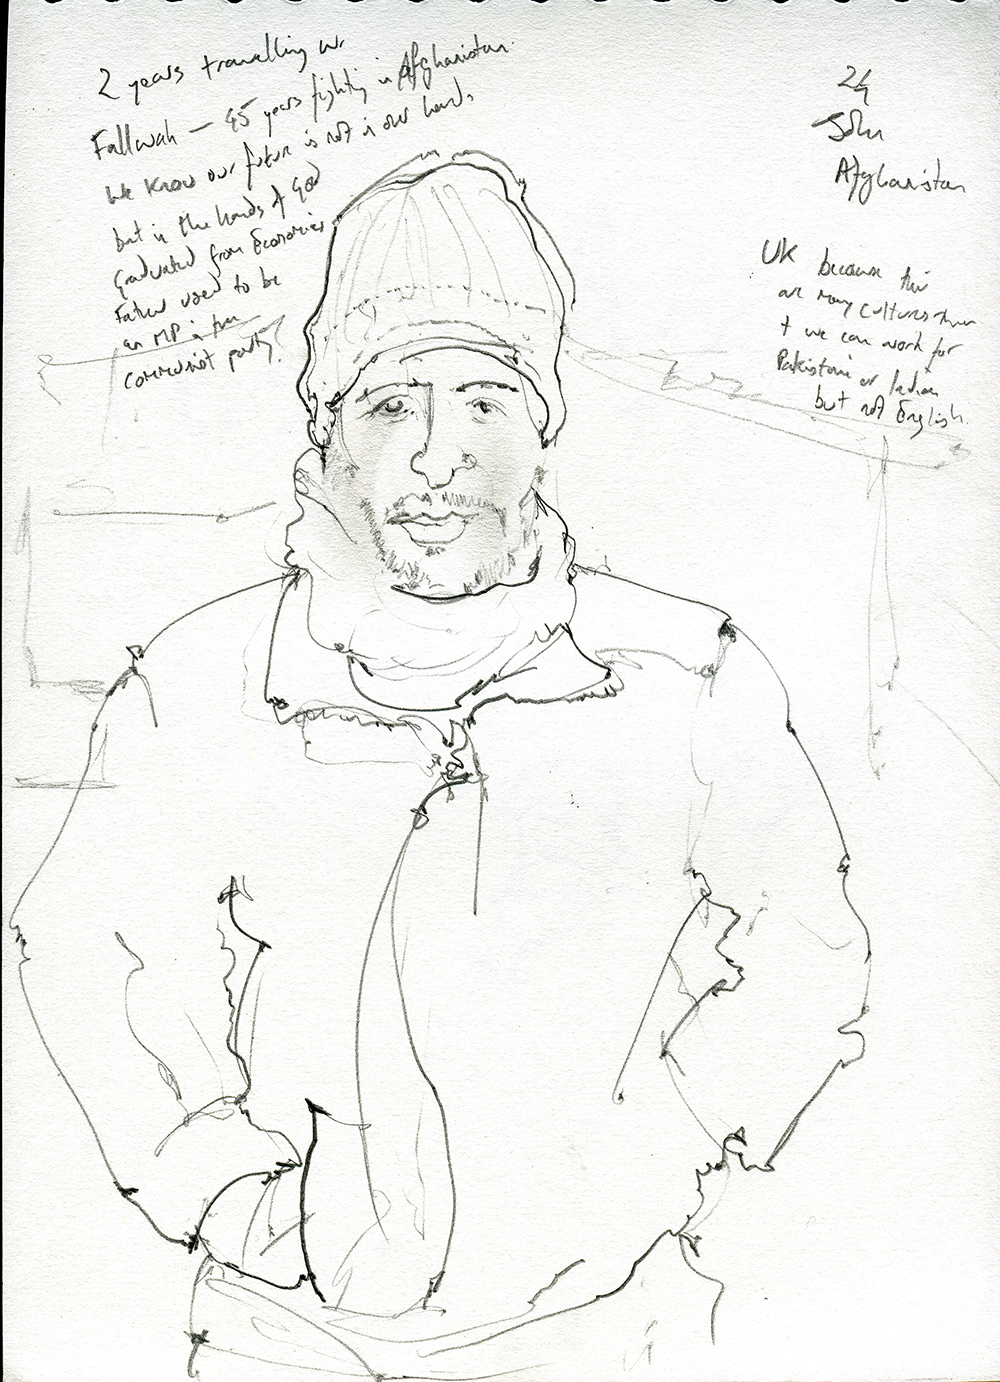 2 years travelling
Fallwah – 45 years fighting in Afghanistan.
We know our future is not in our hands
but in the hands of God
Graduated from Economics
Father used to be
an MP in the
communist party.
24
John
Afghanistan
UK because their
are many cultures there
+ we can work for
Pakistani or Indian
but not English.